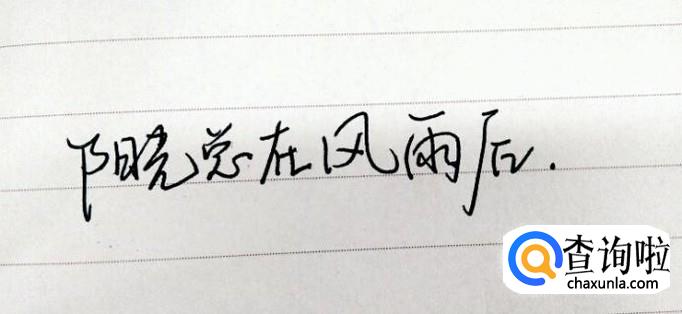 阳光总在风雨后.
查询啦
chaxunla.com